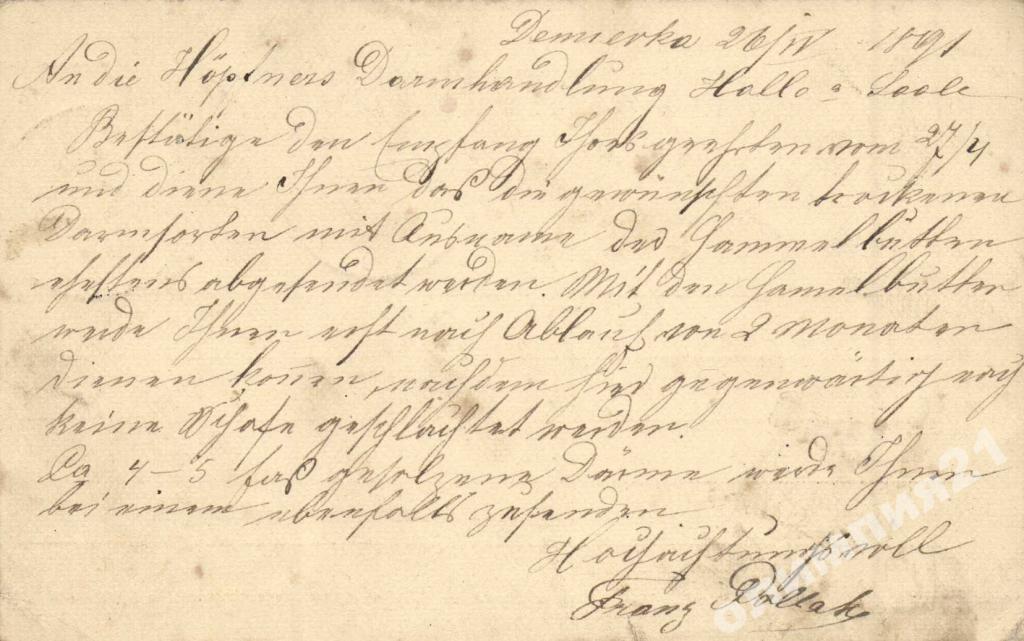 Demierka 26/IV 1891
An die Höpfners Darmhandlung Halle a Saale
Bestätige den Empfang Ihres geehrten vom 27/4
und diene Ihnen daß die gewünschten trockenen
Darmsorten mit Ausname der Hammelbutten
ehestens abgesendet werden. Mit den Hamelbutten
werde Ihnen erst nach Ablauf von 2 Monaten
dienen könen, nachdem hier gegenwärtig noch
keine Schafe geschlachtet werden.
Ca 4-5 faß gesalzene Därme werde Ihnen
bei einem ebenfalls zusenden
Hochachtungsvoll
Franz Pollak
олимпия21